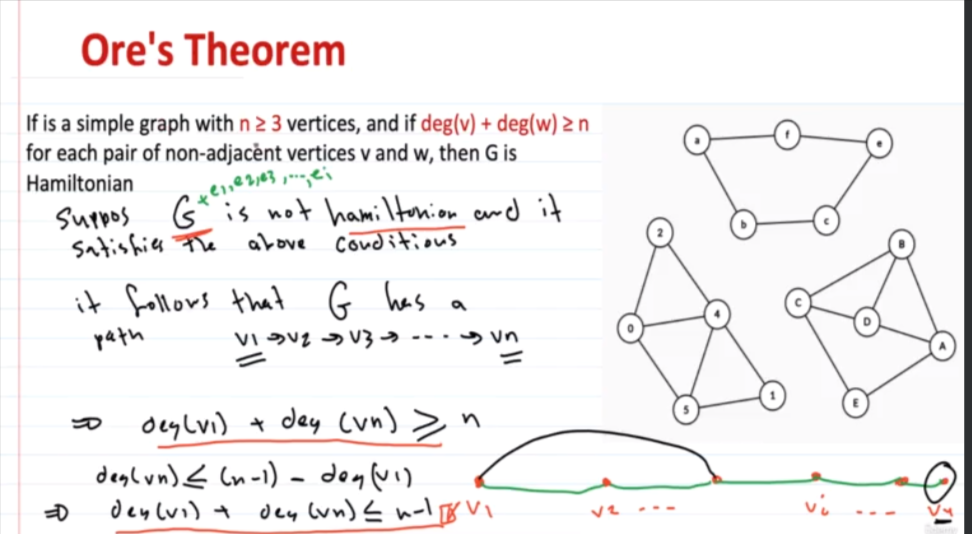 Ore's Theorem
If is a simple graph with n ≥ 3 vertices, and if deg(v) + deg(w) ≥ n
for each pair of non-adjacent vertices v and w, then G is
Hamiltonian
+e1,e2,e3,...,ei
Suppos G is not hamiltonion and it
satisfies the above conditions
it follows that G has a
path v1 → v2 → v3 → ---- → vn
⇒ deg(v1) + deg(vn) ≥ n
deg(vn) ≤ (n-1) - deg(v1)
⇒ deg(v1) + deg(vn) ≤ n-1
a
f
e
b
c
2
0
4
5
1
B
C
D
A
E
v1 v2 --- vi ---- vn